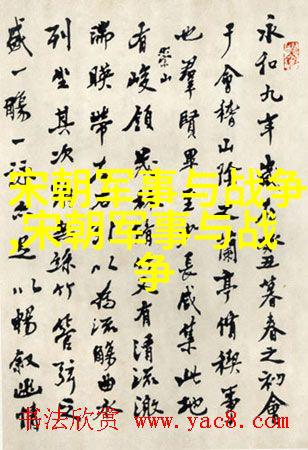 永和九年暮春之初會
于會稽山陰蘭亭脩禊事
也羣賢畢至長咸集此地
有崇山峻領茂有清流激
湍暎帶左以為流觴曲水
列坐其次絲竹管弦之
盛一觴一足以暢敘幽情
宋朝军事与战争
,宋朝军事与战
争
书法欣赏 www.yac8.com